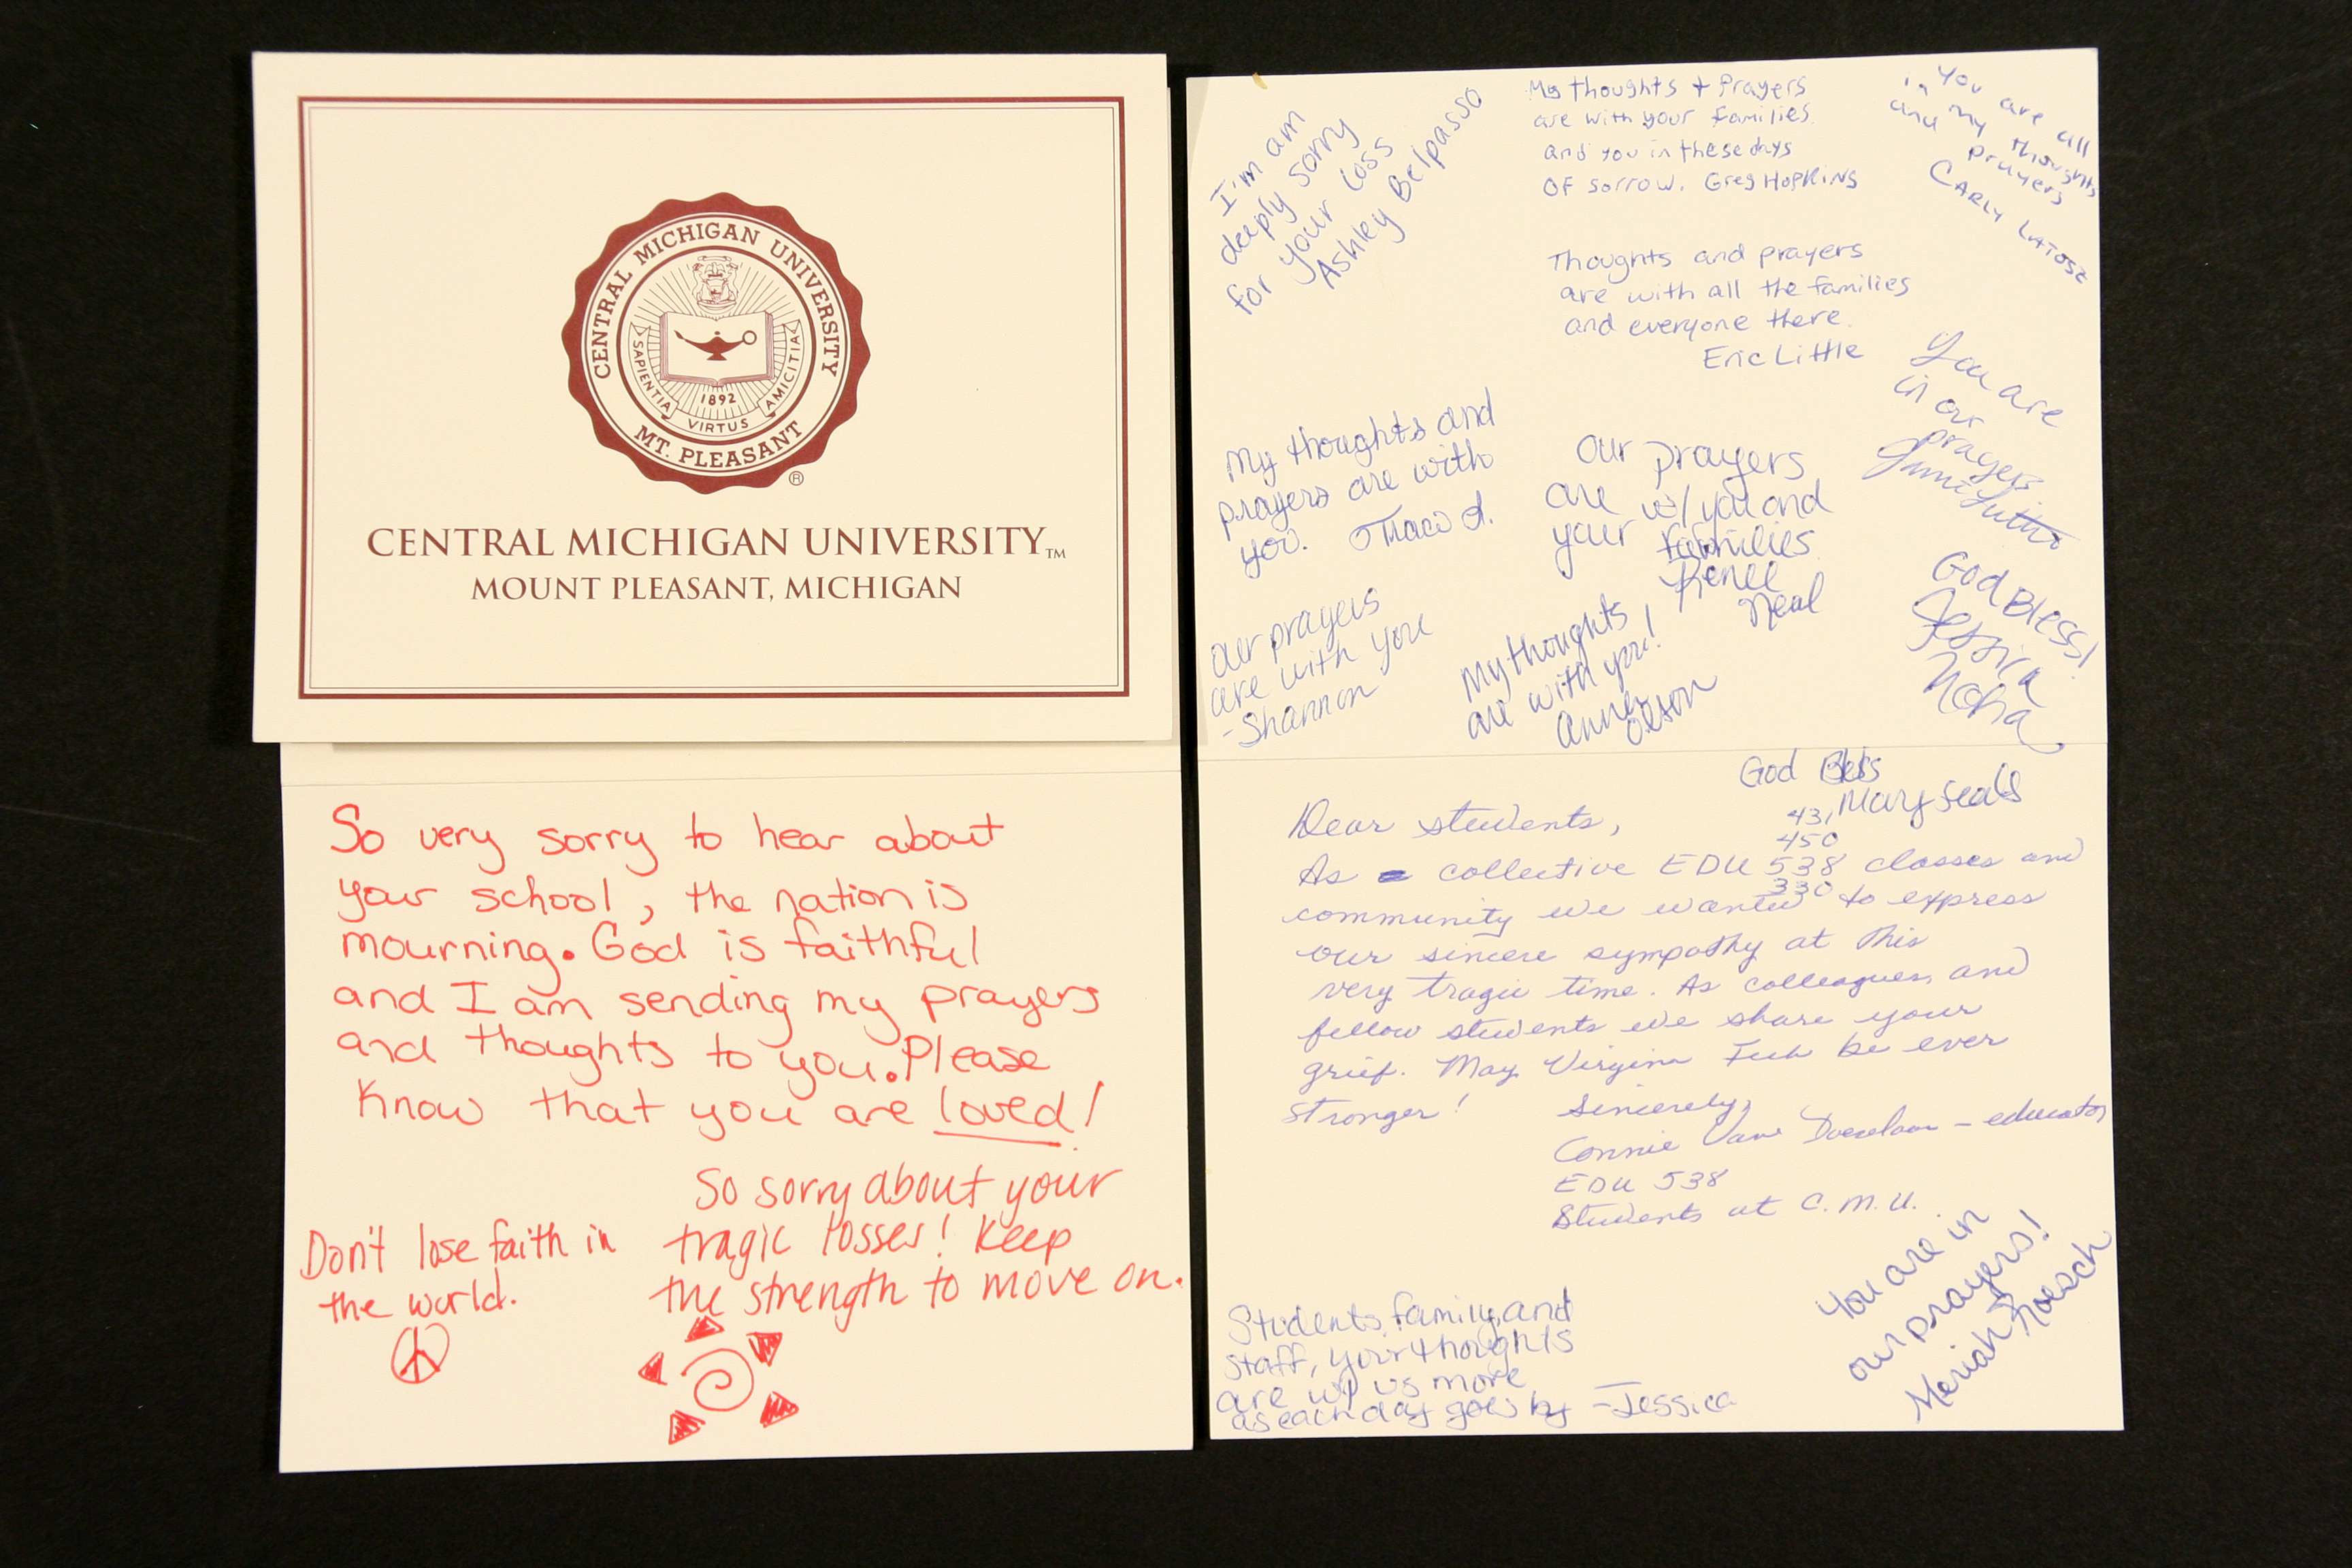 CENTRAL MICHIGAN UNIVERSITY
SAPIENTIA
VIRTUS
AMICITIA
1892
MT. PLEASANT
®
CENTRAL MICHIGAN UNIVERSITY™
MOUNT PLEASANT, MICHIGAN
So very sorry to hear about
your school, the nation is
mourning. God is faithful
and I am sending my prayers
and thoughts to you. Please
know that you are loved!
So sorry about your
tragic losses! Keep
the strength to move on.
Don't lose faith in
the world.
I'm am
deeply sorry
for your loss
Ashley Belpasso
My thoughts + Prayers
are with your families
and you in these days
OF sorrow. Greg HOPKINS
You are all
in my thoughts
and prayers
CARLY LATOSZ
Thoughts and prayers
are with all the families
and everyone there.
Eric Little
You are
in our
prayers
My thoughts and
prayers are with
you.
Our prayers
are w/ you and
your families
Renee
Neal
God Bless!
Jessica
Our prayers
are with you
-Shannon
My thoughts
are with you!
Olson
God Bless
Mary Seals
Dear students,
431,
450
As collective EDU 538 classes and
330
community we wanted to express
our sincere sympathy at this
very tragic time. As colleagues and
fellow students we share your
grief. May Virginia Tech be ever
stronger!
Sincerely,
Connie Van - educator
EDU 538
Students at C.M.U.
Students, family, and
staff, your thoughts
are w/ us more
as each day goes by - Jessica
You are in
our prayers!
Meriah Roesch